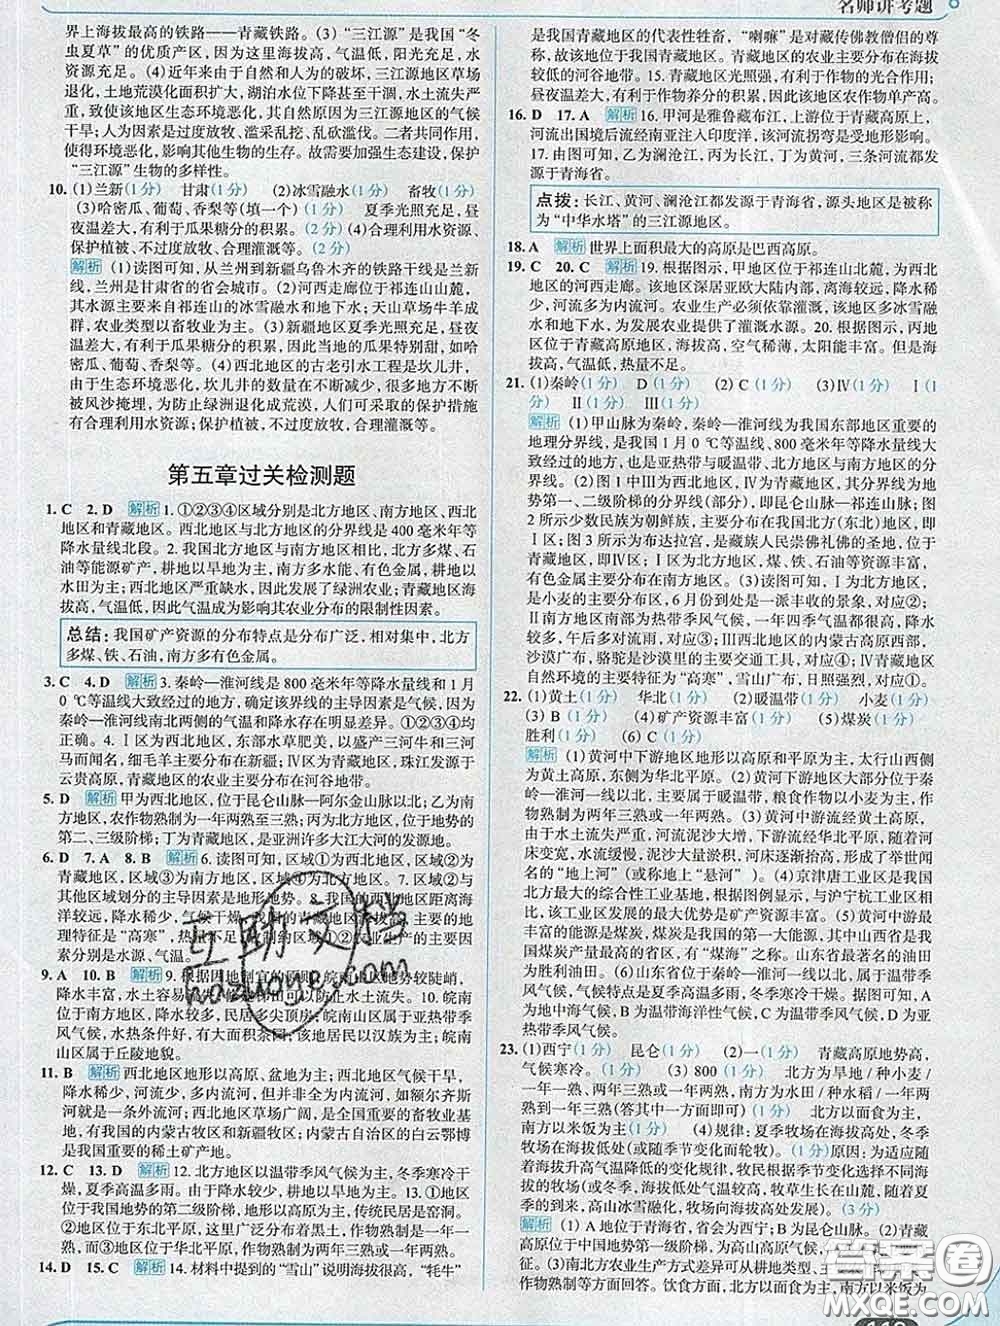 名师讲考题
界上海拔最高的铁路——青藏铁路。(3)“三江源”是我国“冬
虫夏草”的优质产区，因为这里海拔高，气温低，阳光充足，水
资源充足。(4)近年来由于自然和人为的破坏，三江源地区草场
退化，土地荒漠化面积扩大，湖泊水位下降甚至干涸，草场减
少，致使该地区生态环境恶化，其自然原因为三江源地区的气候
干旱；人为因素是过度放牧、滥采乱挖、乱砍滥伐。二者共同作用，
使环境恶化，影响其他生物的生存。故需要加强生态建设，保护
“三江源”生物的多样性。
10. (1)兰新(1分) 甘肃(1分) (2)冰雪融水(1分) 畜牧(1分)
(3)哈密瓜、葡萄、香梨等(填一个)(1分) 夏季光照充足，昼
夜温差大，有利于瓜果糖分的积累。(2分) (4)合理利用水资源、
保护植被、不过度放牧、合理灌溉等。(2分)
解析 (1)读图可知，从兰州到新疆乌鲁木齐的铁路干线是兰新
线，兰州是甘肃省的省会城市。(2)河西走廊位于祁连山以北，
其水源主要来自祁连山的冰雪融水；天山草场牛羊成
群，农业类型以畜牧业为主。(3)新疆地区夏季光照充足，昼夜
温差大，有利于瓜果糖分的积累，当地的瓜果特别甜，如哈密
瓜、葡萄、香梨等。(4)西北地区的古老引水工程是坎儿井，
由于生态环境恶化，坎儿井的数量在不断减少，有些绿洲已
被风沙掩埋，为防止绿洲退化成荒漠，人们可采取的保护措施
有合理利用水资源；保护植被，不过度放牧，合理灌溉等。
第五章过关检测题
1. C 2. D 解析 1. ①②③④区域分别是北方地区、南方地区、西北
地区和青藏地区。西北地区与北方地区的分界线是400毫米年等
降水量线北段。2. 我国北方地区与南方地区相比，北方多煤、石
油等能源矿产，耕地以旱地为主；南方多水能、有色金属，耕地以
水田为主；西北地区严重缺水，因此发展了绿洲农业；青藏地区海
拔高，气温低，因此气温成为影响其农业分布的限制性因素。
总结：我国矿产资源的分布特点是分布广泛，相对集中，北方
多煤、铁、石油，南方多有色金属。
3. C 4. D 解析 3. 秦岭—淮河线是800毫米年等降水量线和1月
0℃等温线大致经过的地方，确定该界线的主导因素是气候，因为
秦岭—淮河线南北两侧的气温和降水存在明显差异。①②③④均
正确。4. Ⅰ区为西北地区，东部水草肥美，以盛产三河牛和三河
马而闻名，细毛羊主要分布在新疆；Ⅳ区为青藏地区，珠江发源于
云贵高原，青藏地区的农业主要分布在河谷地带。
5. D 解析 甲为西北地区，位于昆仑山脉—阿尔金山脉以北；乙为南
方地区，农作物熟制为一年两熟至三熟；丙为北方地区，位于地势的
第二、三级阶梯；丁为青藏地区，是亚洲许多大江大河的发源地。
6. D 7. A 8. B 解析 6. 读图可知，区域①为西北地区，区域②为
青藏地区，区域③为北方地区，区域④为南方地区。7. 区域②与
其他区域划分的主导因素是地形地势。8. ①地区距离海
洋较远，降水稀少，气候干燥，多以沙漠、戈壁为主，②的地
理特征为“高寒”，热量不足，故制约区域①②农业生产的主要因素
分别是水源、气温。
9. A 10. B 解析 9. 根据因地制宜的原则，皖南地势较陡峭，
降水丰富，水土容易流失，种植果树可以防止水土流失。10. 皖南
位于南方地区，降水较多，民居多尖顶房；皖南地区属于亚热带季
风气候，水热条件好，有大量水田；该地居民以汉族为主；皖南
山区属于丘陵地貌。
11. B 解析 西北地区地形以高原、盆地为主；西北地区气候干旱，
降水较少，河流少，多内流河，但并非全为内流河，如额尔齐斯
河就是一条外流河；西北地区草场广阔，是我国主要的畜牧业基
地，有内蒙古牧区和新疆牧区；内蒙古自治区的白云鄂博
是我国著名的稀土矿产地。
12. C 13. D 解析 12. 北方地区以温带季风气候为主，冬季寒冷干
燥，夏季高温多雨。由于降水较少，耕地以旱地为主。13. ①地区
位于我国地势的第二级阶梯，地形以高原为主，传统民居是窑洞。
②地区位于东北平原，这里广泛分布着黑土，作物熟制为一年一
熟，而③地区位于华北平原，作物熟制为两年三熟或一年两熟。
14. D 15. C 解析 14. 材料中提到的“雪山”说明海拔很高，“牦牛”
是我国青藏地区的代表性牲畜，“喇嘛”是对藏传佛教僧侣的尊
称，故该地位于我国青藏地区。青藏地区的农业主要分布在海拔
较低的河谷地带。15. 青藏地区光照强，有利于作物的光合作用；
昼夜温差大，有利于作物养分的积累，因此该地区农作物单产高。
16. D 17. A 解析 16. 甲河是雅鲁藏布江，上游位于青藏高原上，
河流出国境后流经南亚注入印度洋，该河流拐弯是受地形影响。
17. 由图可知，乙为澜沧江，丙为长江，丁为黄河，三条河流都发
源于青海省。
点拨：长江、黄河、澜沧江都发源于青海省，源头地区是被称
为“中华水塔”的三江源地区。
18. A 解析 世界上面积最大的高原是巴西高原。
19. C 20. C 解析 19. 根据图示，甲地区位于祁连山北麓，为西北地
区的河西走廊。该地区深居亚欧大陆内部，距离海洋较远，降水稀
少，河流多为内流河。农业生产必须依靠灌溉，该地区多冰雪融
水和地下水，为发展农业提供了灌溉水源。20. 根据图示，丙地
区位于青藏地区，海拔高，空气稀薄，太阳能丰富。但是，由于海
拔高，气温低，热量不足。
21. (1)秦岭(1分) D(1分) (2)C(1分) (3)Ⅳ(1分) Ⅰ(1
分) Ⅱ(1分) Ⅲ(1分)
解析 (1)甲山脉为秦岭，秦岭—淮河线为我国东部地区重要的
地理分界线，是我国1月0℃等温线、800毫米年等降水量线大
致经过的地方；是亚热带与暖温带、北方地区与南方地区的分界
线。(2)图1中甲为西北地区，丁为青藏地区，其分界线是我国地
势第一、二级阶梯的分界线(部分)，即昆仑山脉—祁连山脉；图
2所示少数民族为朝鲜族，主要分布在我国北方(东北)地区，即
Ⅰ区；图3所示为布达拉宫，是藏族人民崇佛礼佛的圣地，位于青
藏地区，即Ⅳ区；Ⅰ区为北方地区，煤、铁、石油等资源丰富，Ⅱ区
为南方地区，有色金属矿产丰富。(3)读图可知，Ⅰ为北方地区，
是小麦的主产区，6月份到处是一派丰收的景象，对应②；
Ⅱ南方地区纬度较低，热量丰富，一年四季气温都很高，
椰树、凤梨是热带作物，对应③；Ⅲ西北地区的内蒙古高原西部，
沙漠广布，骆驼是沙漠里的主要交通工具，对应④；Ⅳ青藏地区
自然环境的主要特征为“高寒”，雪山广布，日照强烈，对应①。
22. (1)黄土(1分) 华北(1分) (2)暖温带(1分) 小麦(1分)
(3)B(1分) (4)矿产资源丰富(1分) (5)煤炭(1分)
胜利(1分) (6)C(1分)
解析 (1)黄河中下游地区地形以高原和平原为主，太行山西侧
为黄土高原，东侧为华北平原。(2)黄河中下游地区大部分位于秦
岭—淮河一线以北，属于暖温带，粮食作物以小麦为主，作物熟制
为两年三熟或一年两熟。(3)黄河中游流经黄土高原地区，由于
水土流失严重，河流泥沙大增，下游流经华北平原，河床变宽，
河流落差变小，水流减慢，泥沙大量淤积，河床逐渐抬高，形成了举世闻
名的“地上河”(或称之为“悬河”)。(4)京津唐工业区是我国
北方最大的综合性工业基地，根据图例显示，与沪宁杭工业区相
比，该工业区发展的最大优势是矿产资源丰富。(5)黄河中游地
区最丰富的能源是煤炭，煤炭是我国的第一大能源，其中山西省是我
国煤炭产量最高的省区，有“煤海”之称。山东省最著名的油田
为胜利油田。(6)山东省位于秦岭—淮河一线以北，属于温带季
风气候，气候特点是夏季高温多雨，冬季寒冷干燥。据图可知，A
为地中海气候，B为温带海洋性气候，C为温带季风气候，D为亚
热带季风气候。
23. (1)西宁(1分) 昆仑(1分) (2)一(1分) 青藏高原地势高，
气候寒冷。(1分) (3)800(1分) 北方为旱地/种小麦/
一年一熟、两年三熟或一年两熟，南方为水田/种水稻/一年两
熟到三熟(答其中一方面即可)(1分) 北方以面食为主，
南方以米饭为主(1分) (4)规律：夏季牧场在海拔较高处，冬季
牧场在海拔低处(或随季节变化而轮牧)。(1分)原因：气温随
海拔升高气温降低的变化规律，牧民根据季节变化选择不同海
拔的牧场(或4月后，气温升高，牧草生长在海拔较高处；
冬季到来，高山积雪融化，牧场向海拔高处发展)。(3分)
解析 (1)A地位于青海省，省会为西宁，B为昆仑山脉。(2)青藏
高原位于中国地势第一级阶梯，平均海拔在4 000米以上，气候寒冷。
(3)南北方农业生产方式差异可从耕地类型、主要农作物、
作物熟制等方面回答。饮食方面，北方以面食为主，南方以米饭为
答案圈
MXQE.COM